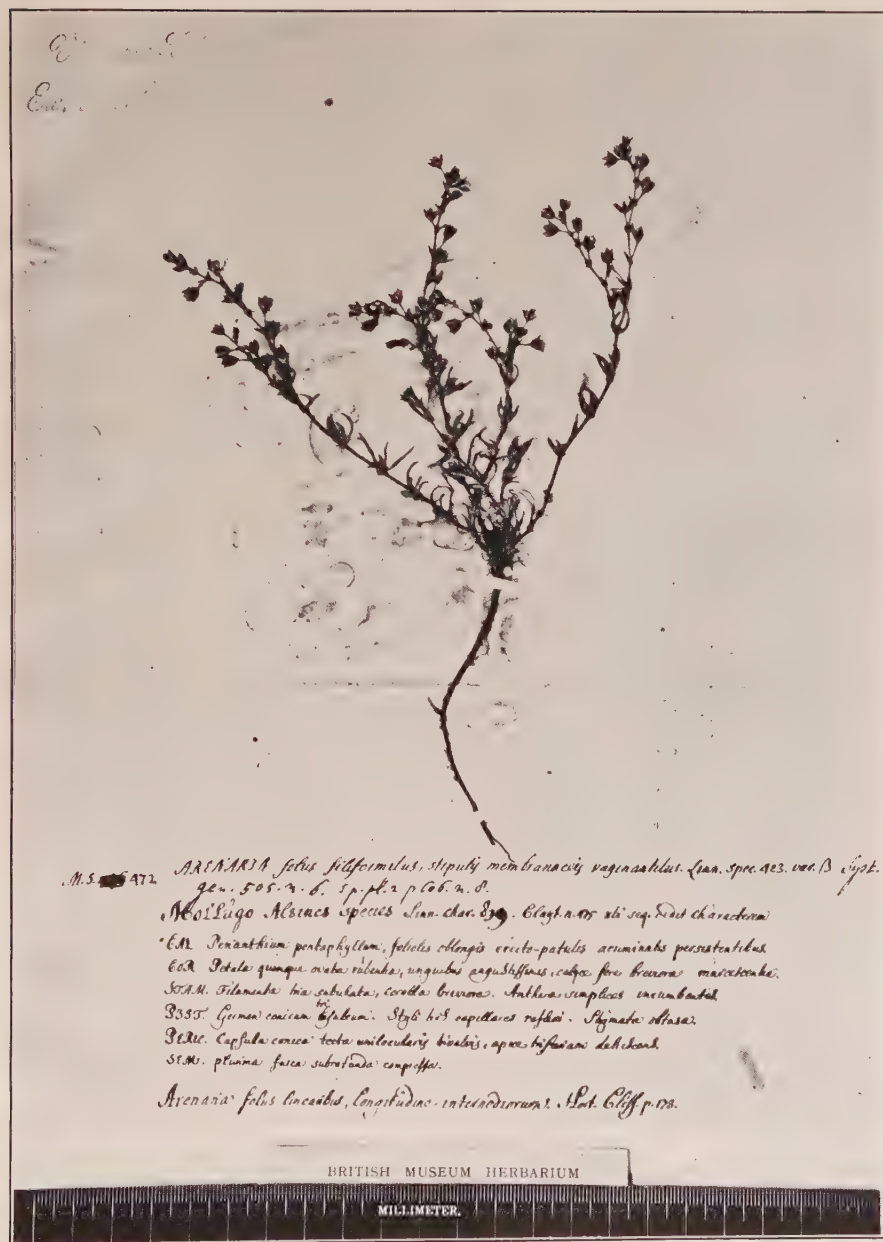 M.S. 472 ARENARIA folus filiformibus, stipulis membranaceis vaginantibus. Linn. spec. 423. var. B Syst.
gen. 505. n. 6. Sp. pl. 2 p 606. n. 8.
Mollugo Alsines species Linn. char. Clayt. n. 475 ubi seq. dedit characterem
CAL Perianthium pentaphyllum, foliolis oblongis erecto-patulis acuminatis persistentibus
COR Petala quinque ovata rubentia, unguibus angustissimis, calyce fere breviora
STAM. Filamenta tria subulata, corolla breviora. Anthera simplices incumbentes
PIST. Germen conicum Styli tres capillares reflexi. Stigmata obtusa.
PERIC. Capsula conica tecta unilocularis trivalvis, apice trifariam dehiscens.
SEM. plurima fusca subrotunda compressa.
Arenaria foliis linearibus, longitudine internodiorum. Hort. Cliff. p. 173.
BRITISH MUSEUM HERBARIUM
MILLIMETER.